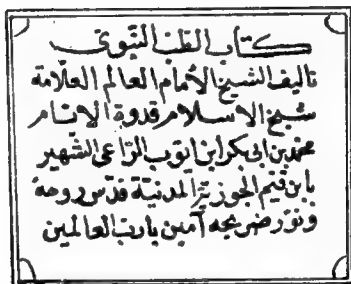 كتاب الطب النبوى
تاليف الشيخ الامام العالم العلامة
شيخ الاسلام قدوة الانام
محمد بن ابى بكر ابن ايوب الزاعى الشهير
بابن قيم الجوزية المدنية قدس روحه
ونور ضريحه آمين يا رب العالمين